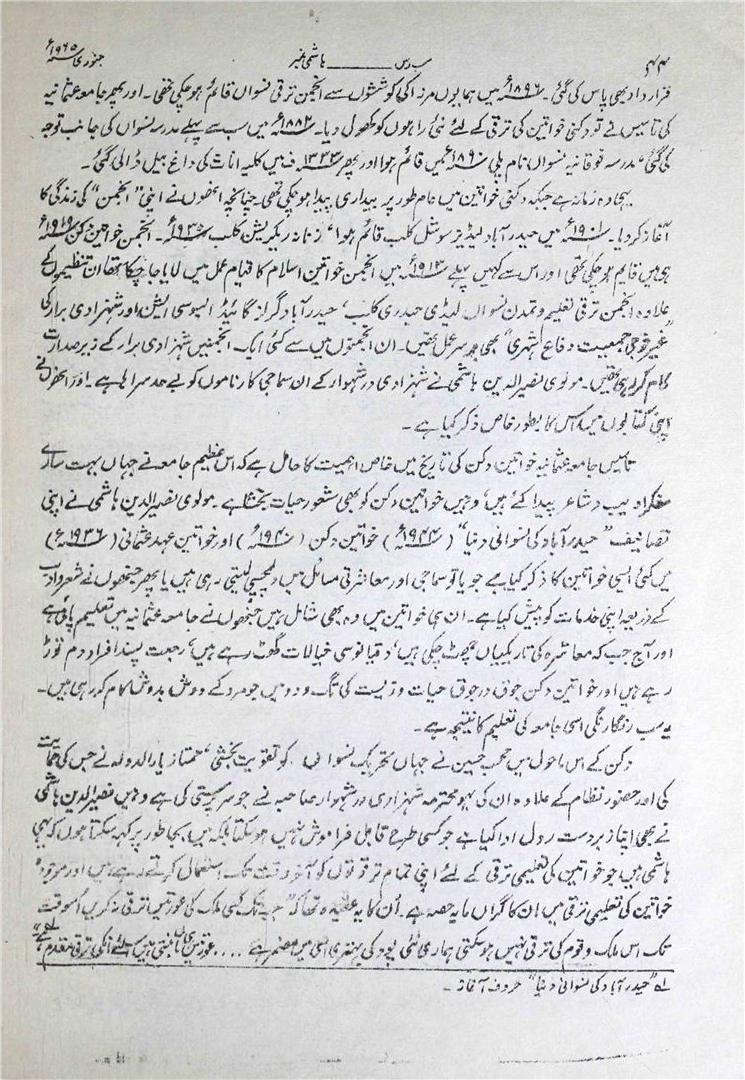 ۴۴ سب رس ــــــــ ہاشمی نمبر جنوری ۱۹۶۵ء
قرار داد بھی پاس کی گئی۔ ۱۸۹۶ء میں ہمایوں مرزا کی کوششوں سے انجمن ترقی نسواں قائم ہو چکی تھی۔ اور پھر جامعہ عثمانیہ
کی تاسیس نے تو دکنی خواتین کی ترقی کے لئے نئی راہوں کو کھول دیا۔ ۱۸۸۲ء میں سب سے پہلے مدرسہ نسواں کی جانب توجہ
کی گئی، مدرسہ فوقانیہ نسواں نام پلی ۱۸۹۰ء میں قائم ہوا اور پھر ۱۳۳۳ ف میں کلیہ اناث کی داغ بیل ڈالی گئی۔
یہی وہ زمانہ ہے جبکہ دکنی خواتین میں عام طور پر بیداری پیدا ہو چکی تھی۔ چنانچہ انھوں نے اپنی "انجمن" کی زندگی کا
آغاز کر دیا۔ ۱۹۰۱ء میں حیدرآباد لیڈیز سوشل کلب قائم ہوا، زنانہ ریکریشن کلب ۱۹۳۵ء۔ انجمن خواتین دکن ۱۹۱۹ء
ہی میں قایم ہو چکی تھی اور اس سے کہیں پہلے ۱۹۱۳ء میں انجمن خواتین اسلام کا قیام عمل میں لایا جا چکا تھا ان تنظیموں کے
علاوہ انجمن ترقی تعلیم و تمدن نسواں لیڈی حیدری کلب، حیدرآباد گرلز گائیڈ ایسوسی ایشن اور شہزادی برار کی
"غیر فوجی جمعیت دفاع شہری" بھی برسر عمل تھیں۔ ان انجمنوں میں سے کئی ایک انجمنیں شہزادی برار کے زیر صدارت
کام کر رہی تھیں۔ مولوی نصیر الدین ہاشمی نے شہزادی درشہوار کے ان سماجی کارناموں کو بے حد سراہا ہے۔ اور انھوں نے
اپنی کتابوں میں اس کا بطور خاص ذکر کیا ہے۔
تاسیس جامعہ عثمانیہ خواتین دکن کی تاریخ میں خاص اہمیت کا حامل ہے کہ اس عظیم جامعہ نے جہاں بہت سارے
مفکر ادیب و شاعر پیدا کئے ہیں، وہیں خواتین دکن کو بھی شعور حیات بخشا ہے۔ مولوی نصیر الدین ہاشمی نے اپنی
تصانیف "حیدرآباد کی نسوانی دنیا" (۱۹۴۴ء) خواتین دکن (۱۹۴۰ء) اور خواتین عہد عثمانی (۱۹۳۶ء)
میں کئی ایسی خواتین کا ذکر کیا ہے جو یا تو سماجی اور معاشرتی مسائل میں دلچسپی لیتی رہی ہیں یا پھر جنھوں نے شعر و ادب
کے ذریعہ اپنی خدمات کو پیش کیا ہے۔ ان ہی خواتین میں وہ بھی شامل ہیں جنھوں نے جامعہ عثمانیہ میں تعلیم پائی ہے
اور آج جب کہ معاشرہ کی تاریکیاں چھوٹ چکی ہیں، دقیانوسی خیالات گھٹ رہے ہیں، رجعت پسند افراد دم توڑ
رہے ہیں اور خواتین دکن جوق در جوق حیات و زیست کی تگ و دو میں جو مرد کے دوش بدوش کام کر رہی ہیں۔
یہ سب رنگا رنگی اسی جامعہ کی تعلیم کا نتیجہ ہے۔
دکن کے اس ماحول میں محب حسین نے جہاں تحریک نسوانی کو تقویت بخشی، ممتاز یار الدولہ نے جس کی حمایت
کی اور حضور نظام کے علاوہ ان کی بہو محترمہ شہزادی درشہوار صاحبہ نے جو سرپرستی کی ہے وہیں نصیر الدین ہاشمی
نے بھی اپنا زبردست رول ادا کیا ہے جو کسی طرح قابل فراموش نہیں ہو سکتا بلکہ میں بجا طور پر کہہ سکتا ہوں کہ یہی
ہاشمی ہیں جو خواتین کی تعلیمی ترقی کے لئے اپنی تمام تر قوتوں کو آخر وقت تک استعمال کرتے رہے ہیں اور موجودہ
خواتین کی تعلیمی ترقی میں ان کا گراں مایہ حصہ ہے۔ اُن کا یہ عقیدہ تھا کہ "جب تک کسی ملک کی عورتیں ترقی نہ کریں اُسوقت
تک اس ملک و قوم کی ترقی نہیں ہو سکتی ہماری نئی پود کی بہتری اسی میں مضمر ہے .... عورتیں ہی ماں بنتی ہیں اسلئے انکی ترقی مقدم ہے"۱؎
۱؎ "حیدرآباد کی نسوانی دنیا" حروف آغاز۔